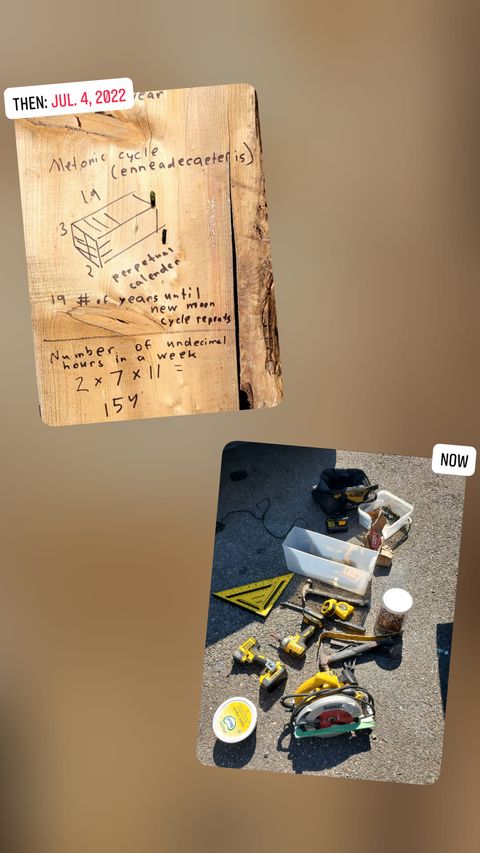 THEN: JUL. 4, 2022
year
Metonic cycle
(enneadecaeteris)
19
3
2
perpetual
calender
19 # of years until
new moon
cycle repeats
Number of undecimal
hours in a week
2 x 7 x 11 =
154
NOW